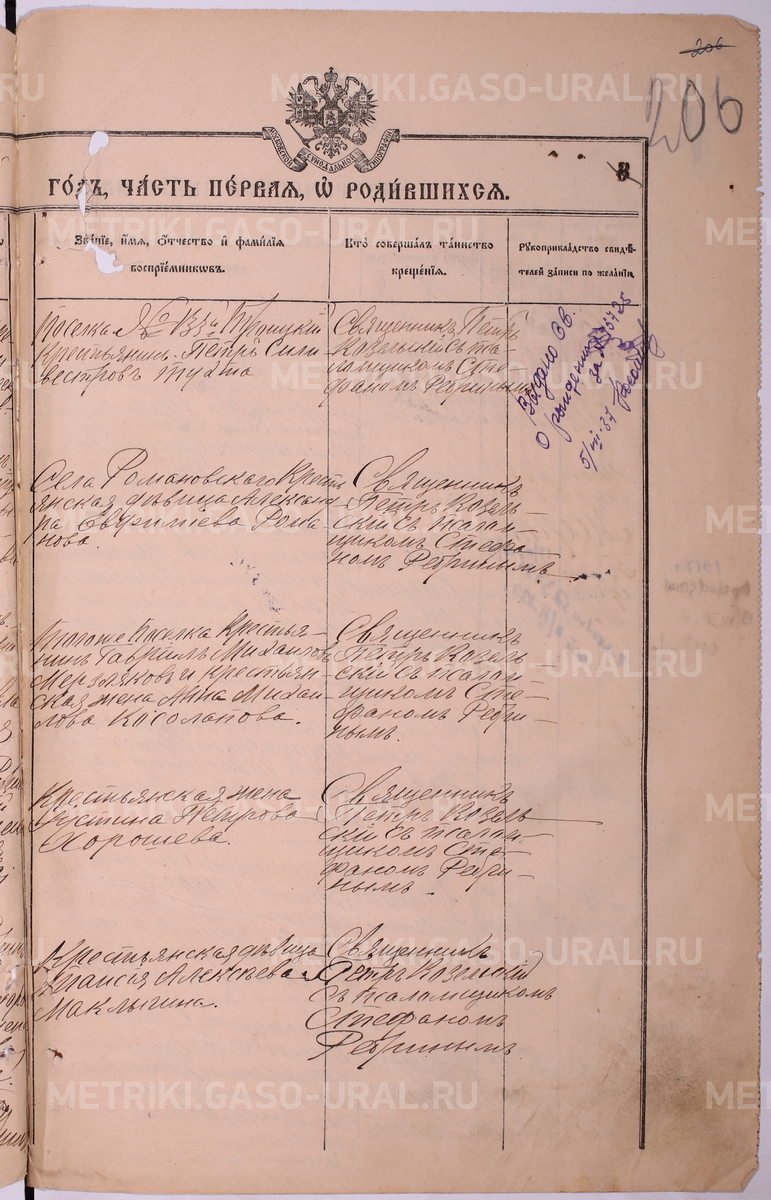 206
206
МОСКОВСКОЙ СѴНОДАЛЬНОЙ ТИПОГРАФІИ
го́дъ, ча́сть пе́рвая, ѡ҆ роди́вшихся.
8
Зва́ніе, и҆́мя, ѻ҆́тчество и҆ фами́лія
воспрїе́мникѡвъ.
Кто̀ соверша́лъ та́инство
креще́нїя.
Рукоприкла́дство свидѣ́-
телей за́писи по жела́нїю
Поселка №
Крестьянинъ Петръ Сили
вестровъ Тухта
Священникъ Петръ
Козельскій съ пса-
ломщикомъ Сте
фаномъ Ребринымъ
Выдано св.
о рождении
за №
5/VII-37
Села Романовскаго Кресть
янская дѣвица Алексан
ра Евфиміева Рома
нова.
Священникъ
Петръ Козель-
скій съ псалом-
щикомъ Стефа
номъ Ребринымъ
Тогоже Поселка Крестья-
нинъ Гавріилъ Михаиловъ
Мерзляковъ и крестьян-
ская жена Анна Михаи
лова Косолапова.
Священникъ
Петръ Козель-
скій съ псалом-
щикомъ Сте-
фаномъ Ребри-
нымъ.
Крестьянская жена
Іустина Петрова
Хорошева.
Священникъ
Петръ Козель
скій съ псалом-
щикомъ Сте-
фаномъ Ребри-
нымъ.
Крестьянская дѣвица
Таисія Алексѣева
Маклыгина.
Священникъ
Петръ Козельскій
съ псаломщикомъ
Стефаномъ
Ребринымъ.
METRIKI.GASO-URAL.RU